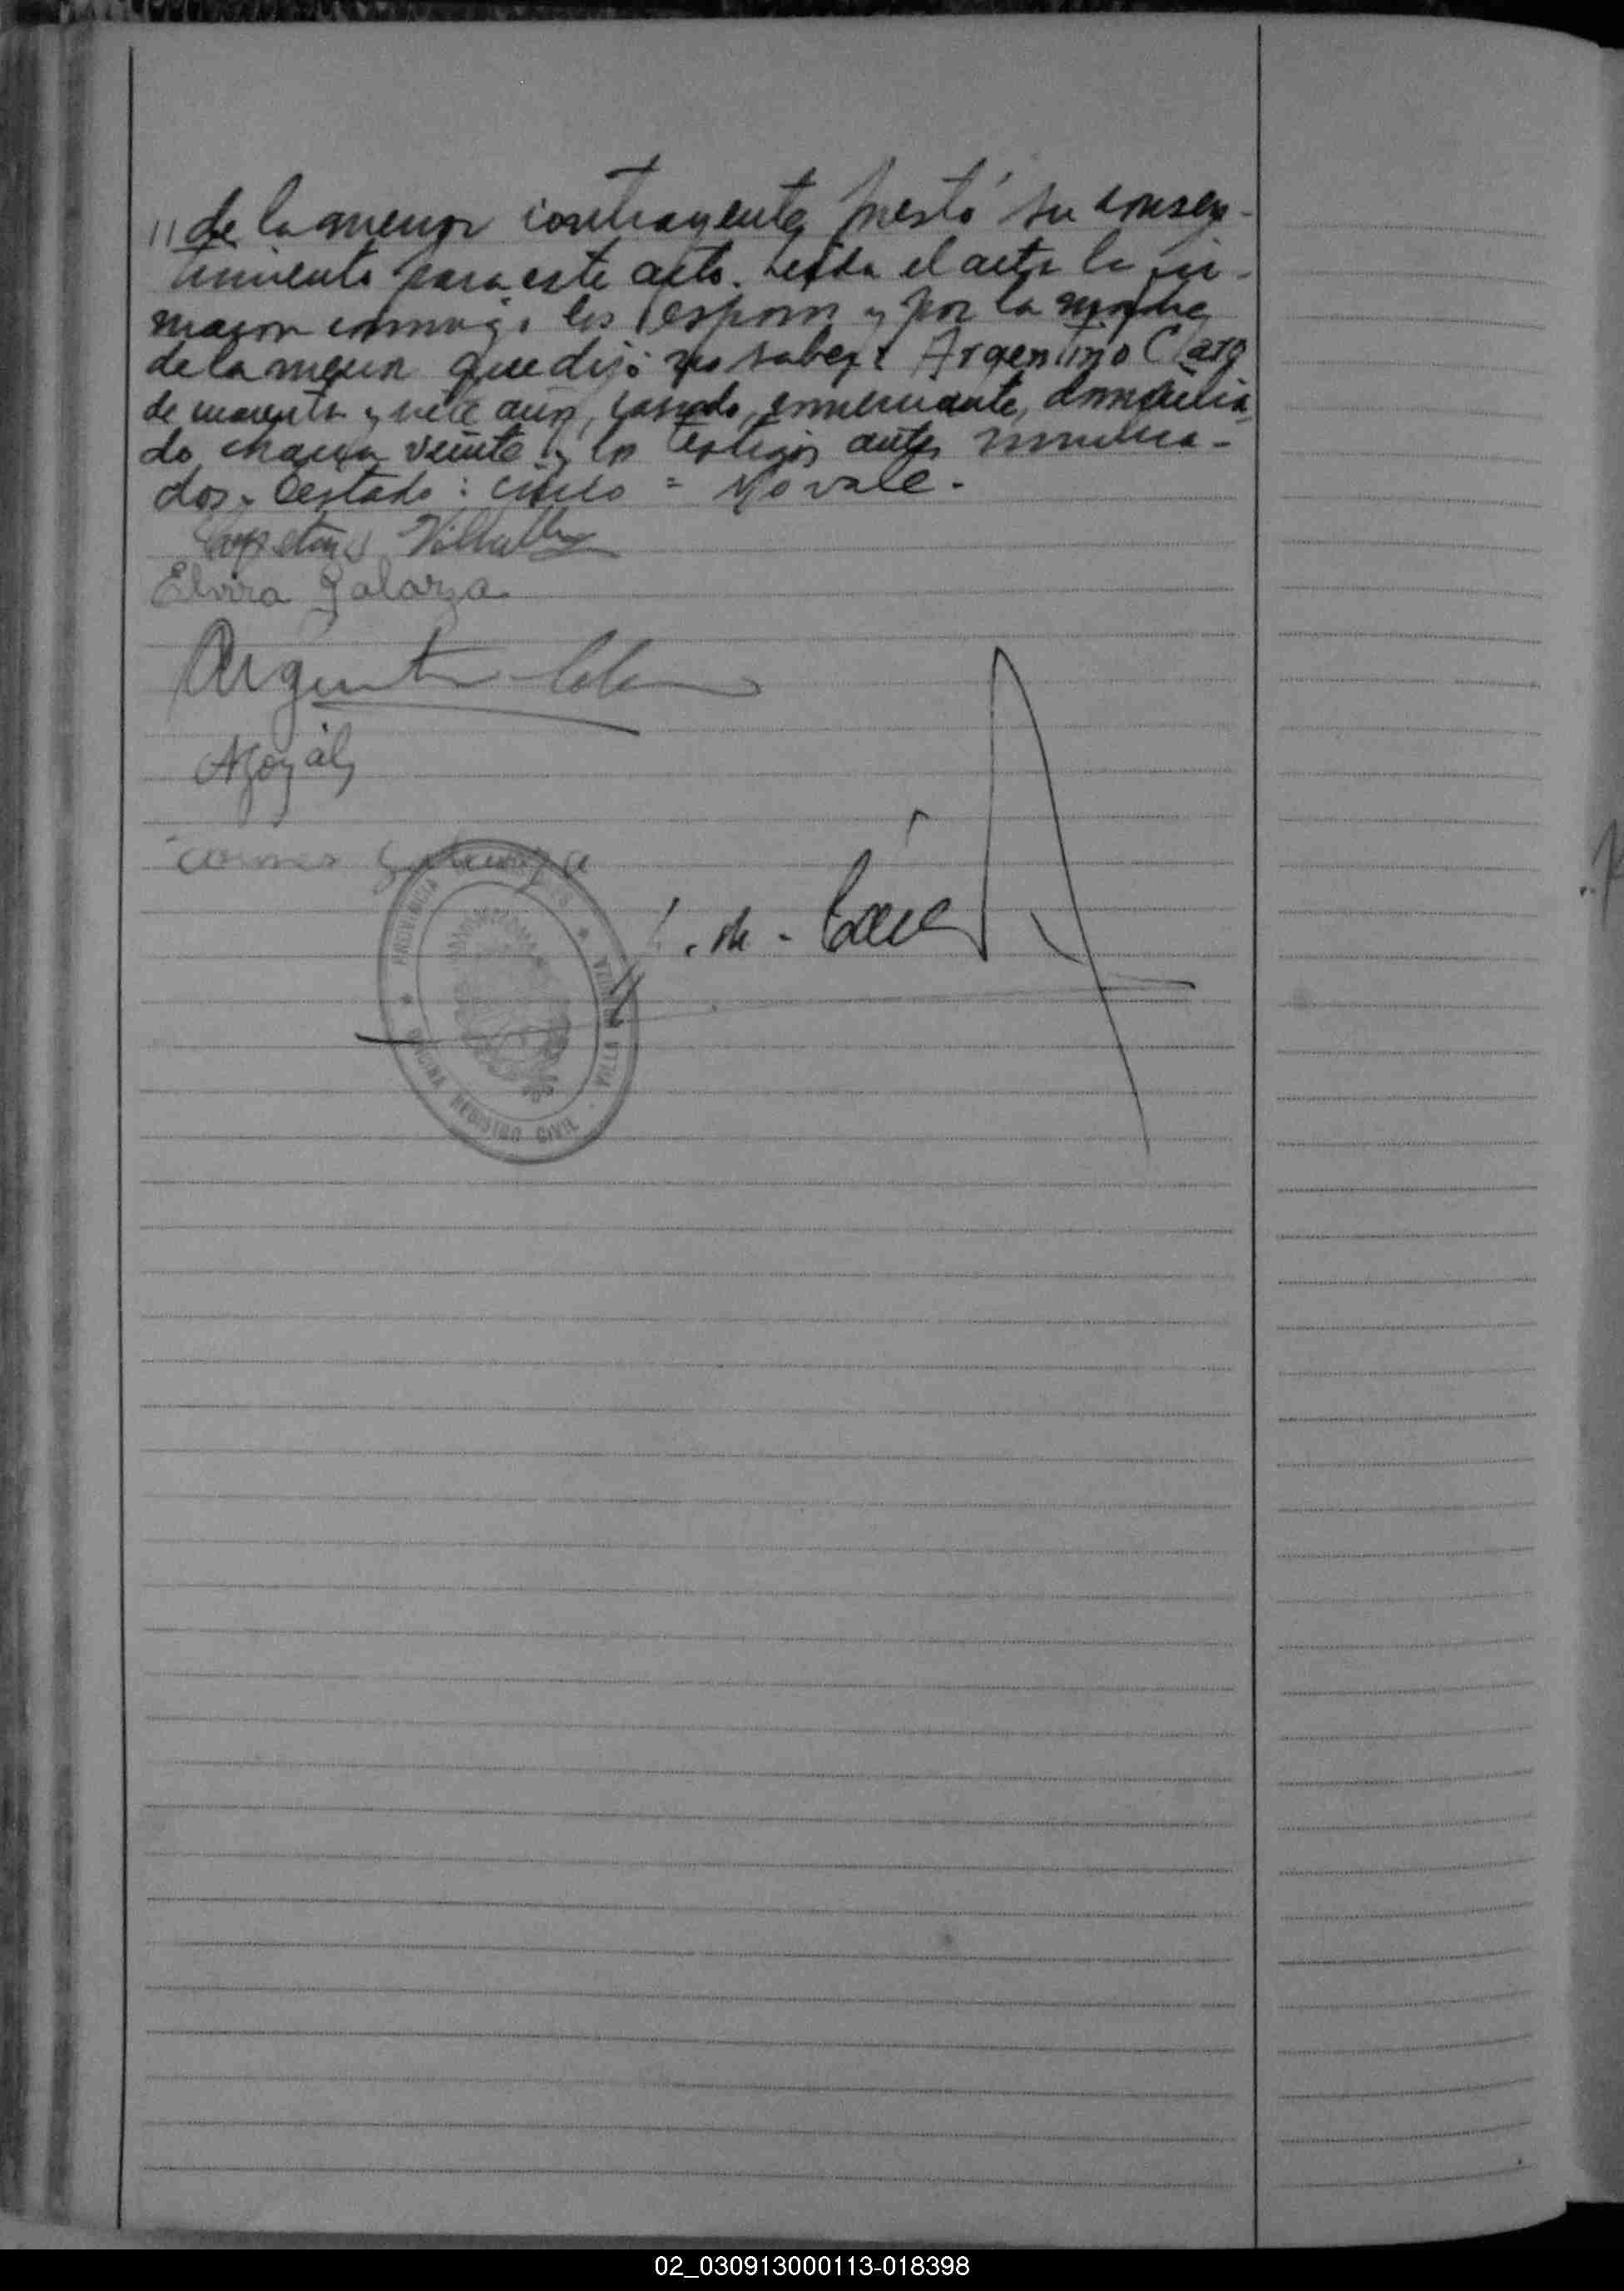 // de la menor contrayente, prestó su consen-
timiento para este acto. Leída el acta la fir-
maron conmigo los esposos y por la madre
de la menor que dijo no saber: Argentino Claro
de cuarenta y siete años, casado, comerciante, domicilia
do chacra veinte y los testigos antes nombra-
dos. Testado: cinco = No vale.
Villalba
Elvira Galarza
Argentino Claro
PROVINCIA
OFICINA REGISTRO CIVIL · VILLA
02_030913000113-018398